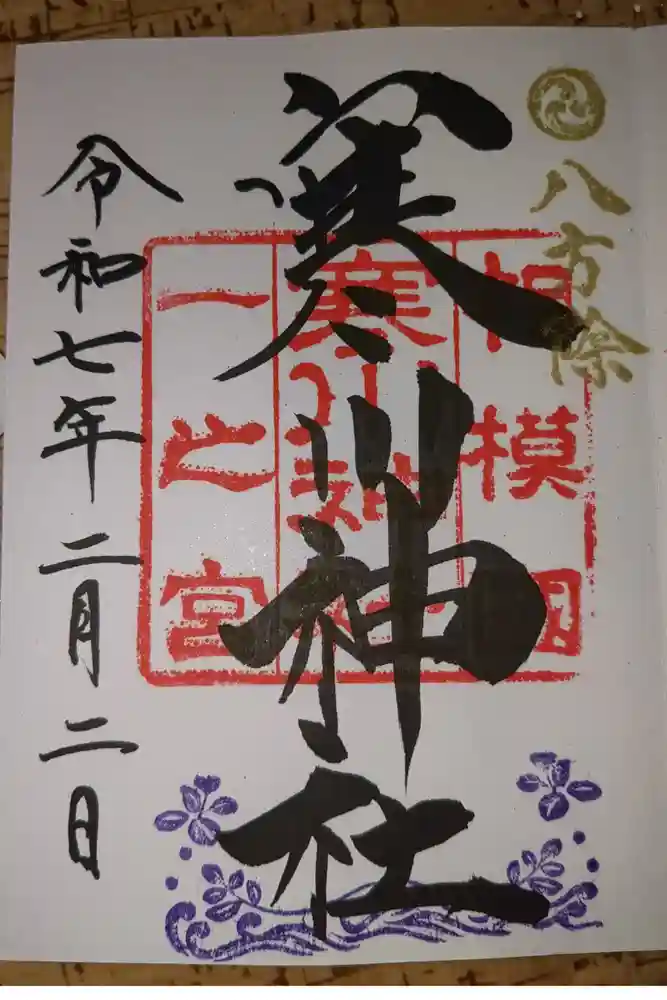 八方除
寒川神社
相模國
寒川神社
一之宮
令和七年二月二日